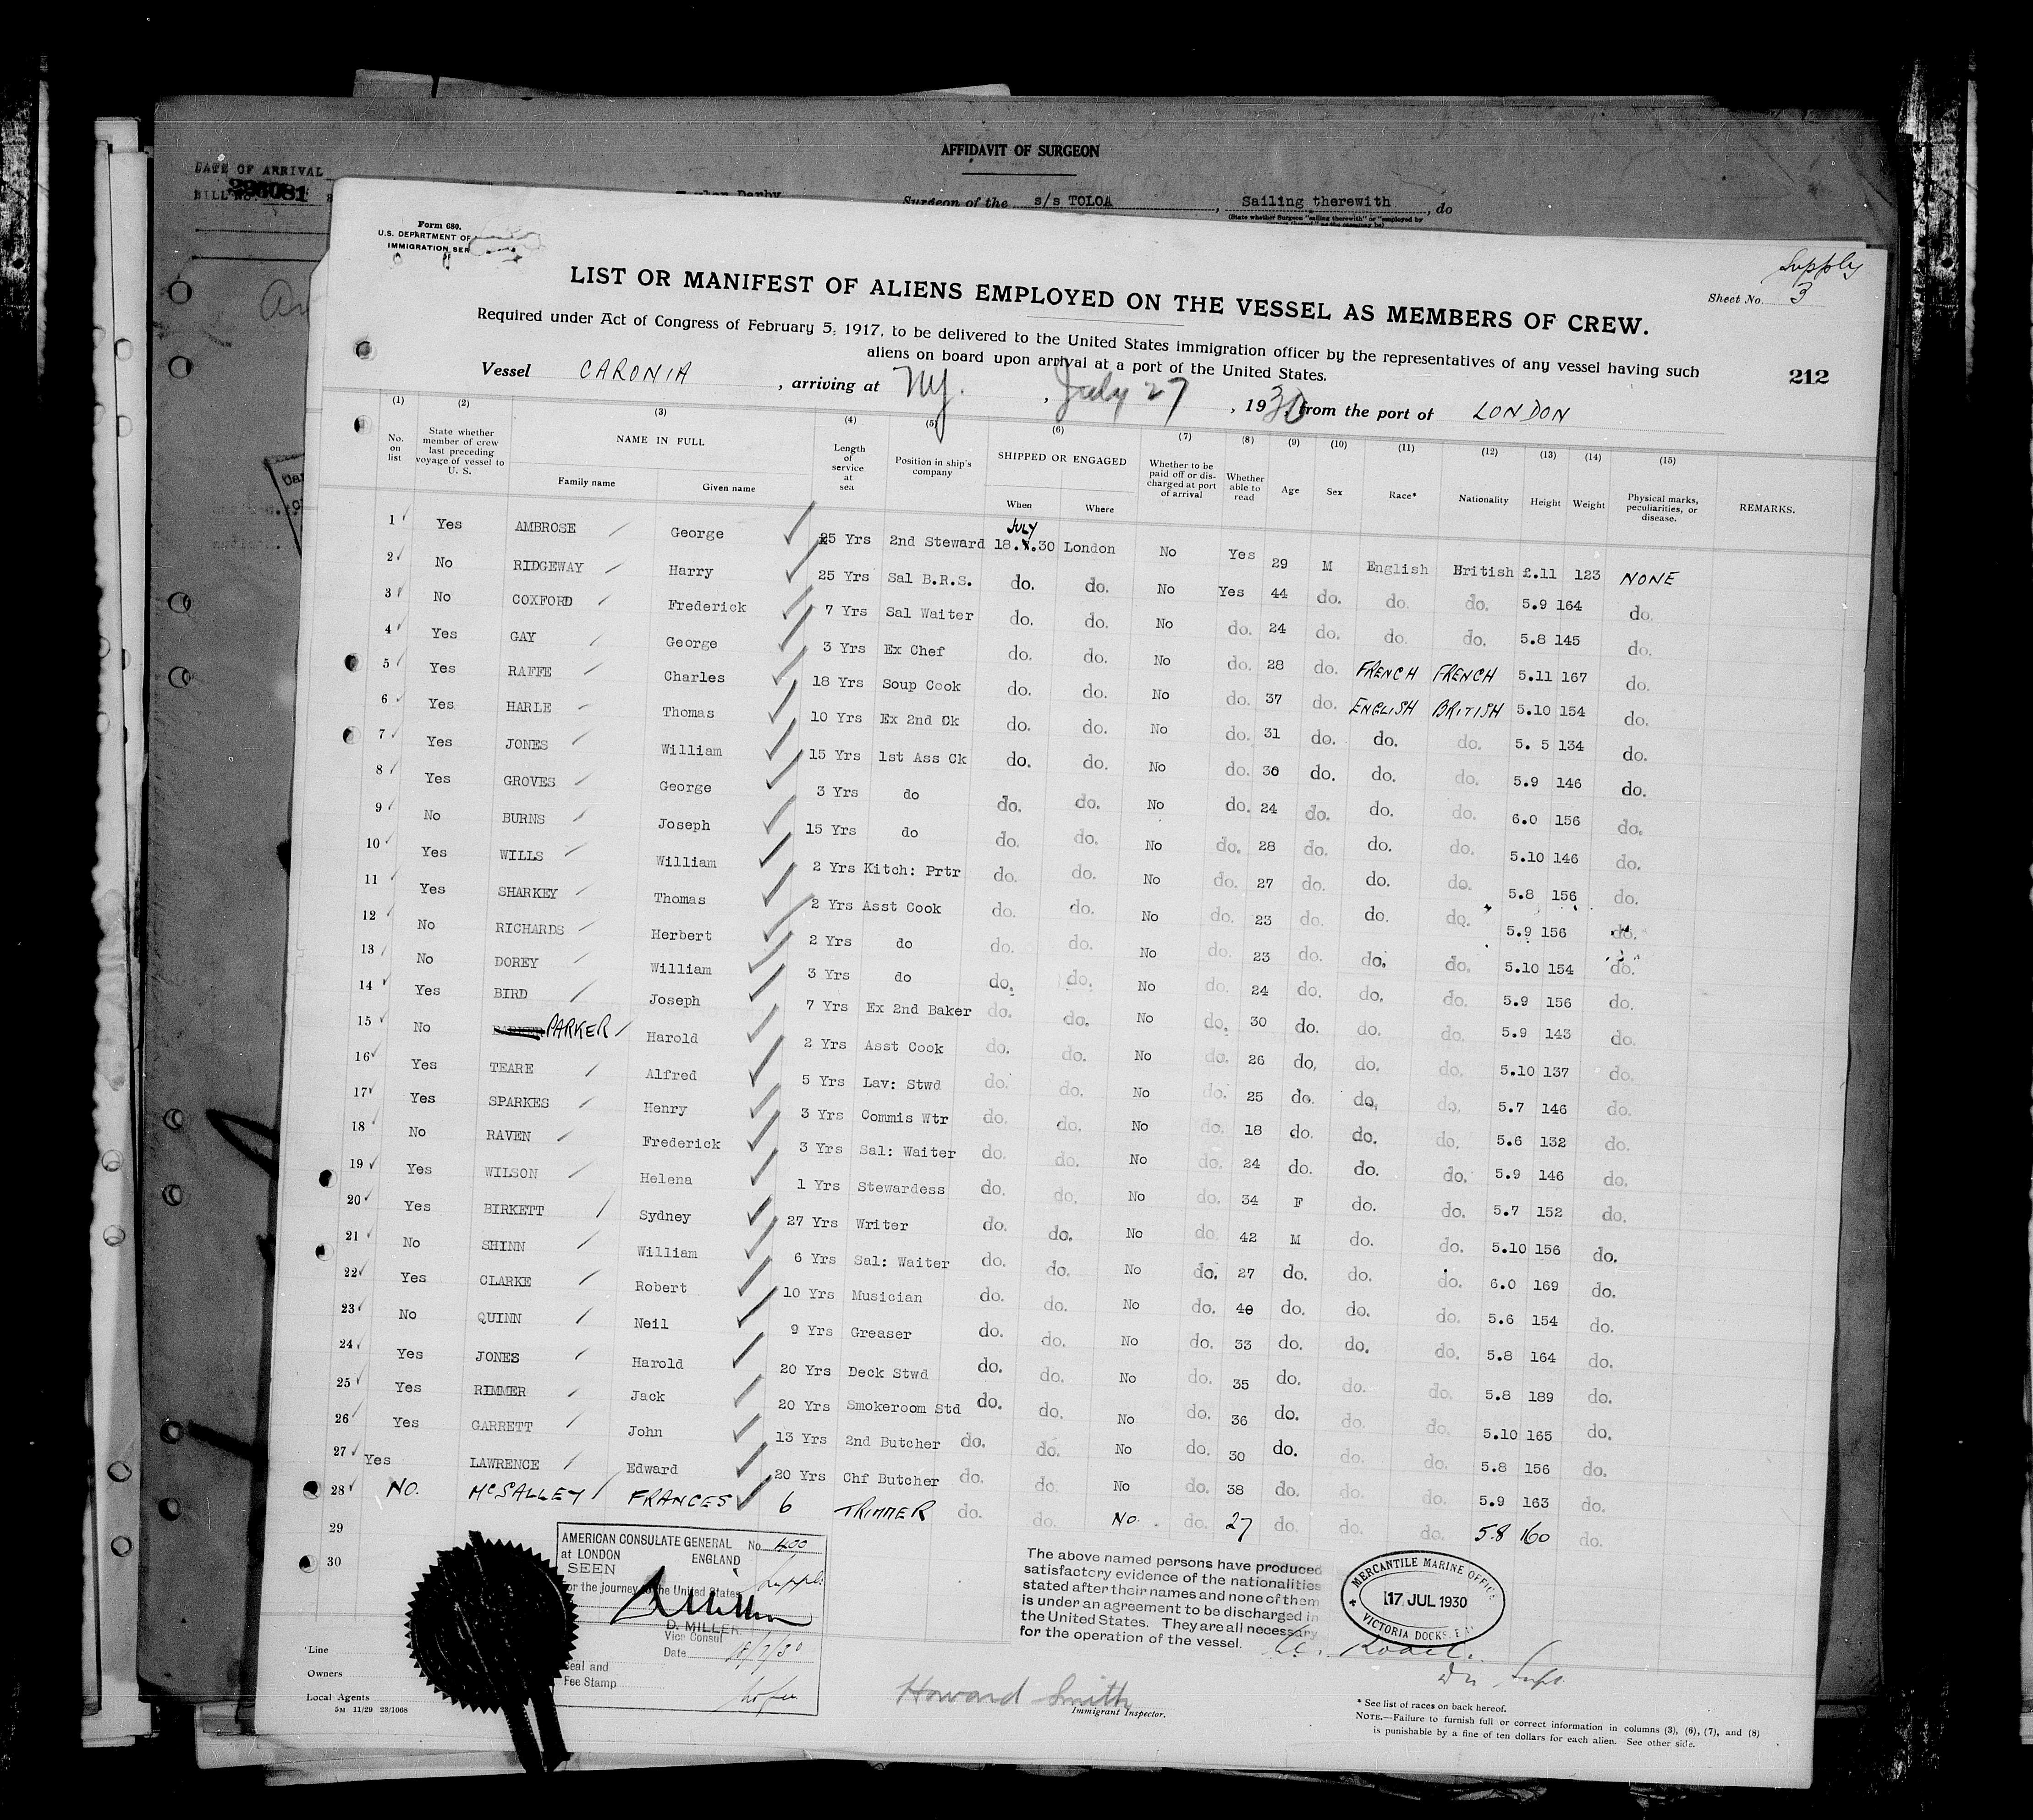 AFFIDAVIT OF SURGEON
DATE OF ARRIVAL
Surgeon of the s/s TOLOA, Sailing therewith, do
Form 680.
U.S. DEPARTMENT OF
IMMIGRATION SER
Supply
Sheet No. 3
LIST OR MANIFEST OF ALIENS EMPLOYED ON THE VESSEL AS MEMBERS OF CREW.
Required under Act of Congress of February 5, 1917, to be delivered to the United States immigration officer by the representatives of any vessel having such
aliens on board upon arrival at a port of the United States.
212
Vessel CARONIA, arriving at NY., July 27, 1930 from the port of LONDON
(1) (2) (3) (4) (5) (6) (7) (8) (9) (10) (11) (12) (13) (14) (15)
No. on list State whether member of crew last preceding voyage of vessel to U. S. NAME IN FULL Family name Given name Length of service at sea Position in ship's company SHIPPED OR ENGAGED When Where Whether to be paid off or discharged at port of arrival Whether able to read Age Sex Race* Nationality Height Weight Physical marks, peculiarities, or disease. REMARKS.
1 Yes AMBROSE George 25 Yrs 2nd Steward 18.JULY.30 London No Yes 29 M English British 5.11 123 NONE
2 No RIDGEWAY Harry 25 Yrs Sal B.R.S. do. do. No Yes 44 do. do. do. 5.9 164 do.
3 No COXFORD Frederick 7 Yrs Sal Waiter do. do. No do. 24 do. do. do. 5.8 145 do.
4 Yes GAY George 3 Yrs Ex Chef do. do. No do. 28 do. FRENCH FRENCH 5.11 167 do.
5 Yes RAFFE Charles 18 Yrs Soup Cook do. do. No do. 37 do. ENGLISH BRITISH 5.10 154 do.
6 Yes HARLE Thomas 10 Yrs Ex 2nd Ck do. do. No do. 31 do. do. do. 5. 5 134 do.
7 Yes JONES William 15 Yrs 1st Ass Ck do. do. No do. 30 do. do. do. 5.9 146 do.
8 Yes GROVES George 3 Yrs do do. do. No do. 24 do. do. do. 6.0 156 do.
9 No BURNS Joseph 15 Yrs do do. do. No do. 28 do. do. do. 5.10 146 do.
10 Yes WILLS William 2 Yrs Kitch: Prtr do. do. No do. 27 do. do. do. 5.8 156 do.
11 Yes SHARKEY Thomas 2 Yrs Asst Cook do. do. No do. 23 do. do. do. 5.9 156 do.
12 No RICHARDS Herbert 2 Yrs do do. do. No do. 23 do. do. do. 5.10 154 do.
13 No DOREY William 3 Yrs do do. do. No do. 24 do. do. do. 5.9 156 do.
14 Yes BIRD Joseph 7 Yrs Ex 2nd Baker do. do. No do. 30 do. do. do. 5.9 143 do.
15 No PARKER Harold 2 Yrs Asst Cook do. do. No do. 26 do. do. do. 5.10 137 do.
16 Yes TEARE Alfred 5 Yrs Lav: Stwd do. do. No do. 25 do. do. do. 5.7 146 do.
17 Yes SPARKES Henry 3 Yrs Commis Wtr do. do. No do. 18 do. do. do. 5.6 132 do.
18 No RAVEN Frederick 3 Yrs Sal: Waiter do. do. No do. 24 do. do. do. 5.9 146 do.
19 Yes WILSON Helena 1 Yrs Stewardess do. do. No do. 34 F do. do. 5.7 152 do.
20 Yes BIRKETT Sydney 27 Yrs Writer do. do. No do. 42 M do. do. 5.10 156 do.
21 No SHINN William 6 Yrs Sal: Waiter do. do. No do. 27 do. do. do. 6.0 169 do.
22 Yes CLARKE Robert 10 Yrs Musician do. do. No do. 40 do. do. do. 5.6 154 do.
23 No QUINN Neil 9 Yrs Greaser do. do. No do. 33 do. do. do. 5.8 164 do.
24 Yes JONES Harold 20 Yrs Deck Stwd do. do. No do. 35 do. do. do. 5.8 189 do.
25 Yes RIMMER Jack 20 Yrs Smokeroom Std do. do. No do. 36 do. do. do. 5.10 165 do.
26 Yes GARRETT John 13 Yrs 2nd Butcher do. do. No do. 30 do. do. do. 5.8 156 do.
27 Yes LAWRENCE Edward 20 Yrs Chf Butcher do. do. No do. 38 do. do. do. 5.9 163 do.
28 NO. McSALLEY FRANCES 6 TRIMMER do. do. NO. do. 27 do. do. do. 5.8 160 do.
29
30
AMERICAN CONSULATE GENERAL No. 400
at LONDON ENGLAND
SEEN
For the journey to the United States
D. MILLER.
Vice Consul
Date 18/7/30
Seal and
Fee Stamp
The above named persons have produced
satisfactory evidence of the nationalities
stated after their names and none of them
is under an agreement to be discharged in
the United States. They are all necessary
for the operation of the vessel.
MERCANTILE MARINE OFFICE
17 JUL 1930
VICTORIA DOCKS, E.
Line
Owners
Local Agents
5M 11/29 23/1068
Howard Smith
Immigrant Inspector.
* See list of races on back hereof.
NOTE.—Failure to furnish full or correct information in columns (3), (6), (7), and (8)
is punishable by a fine of ten dollars for each alien. See other side.